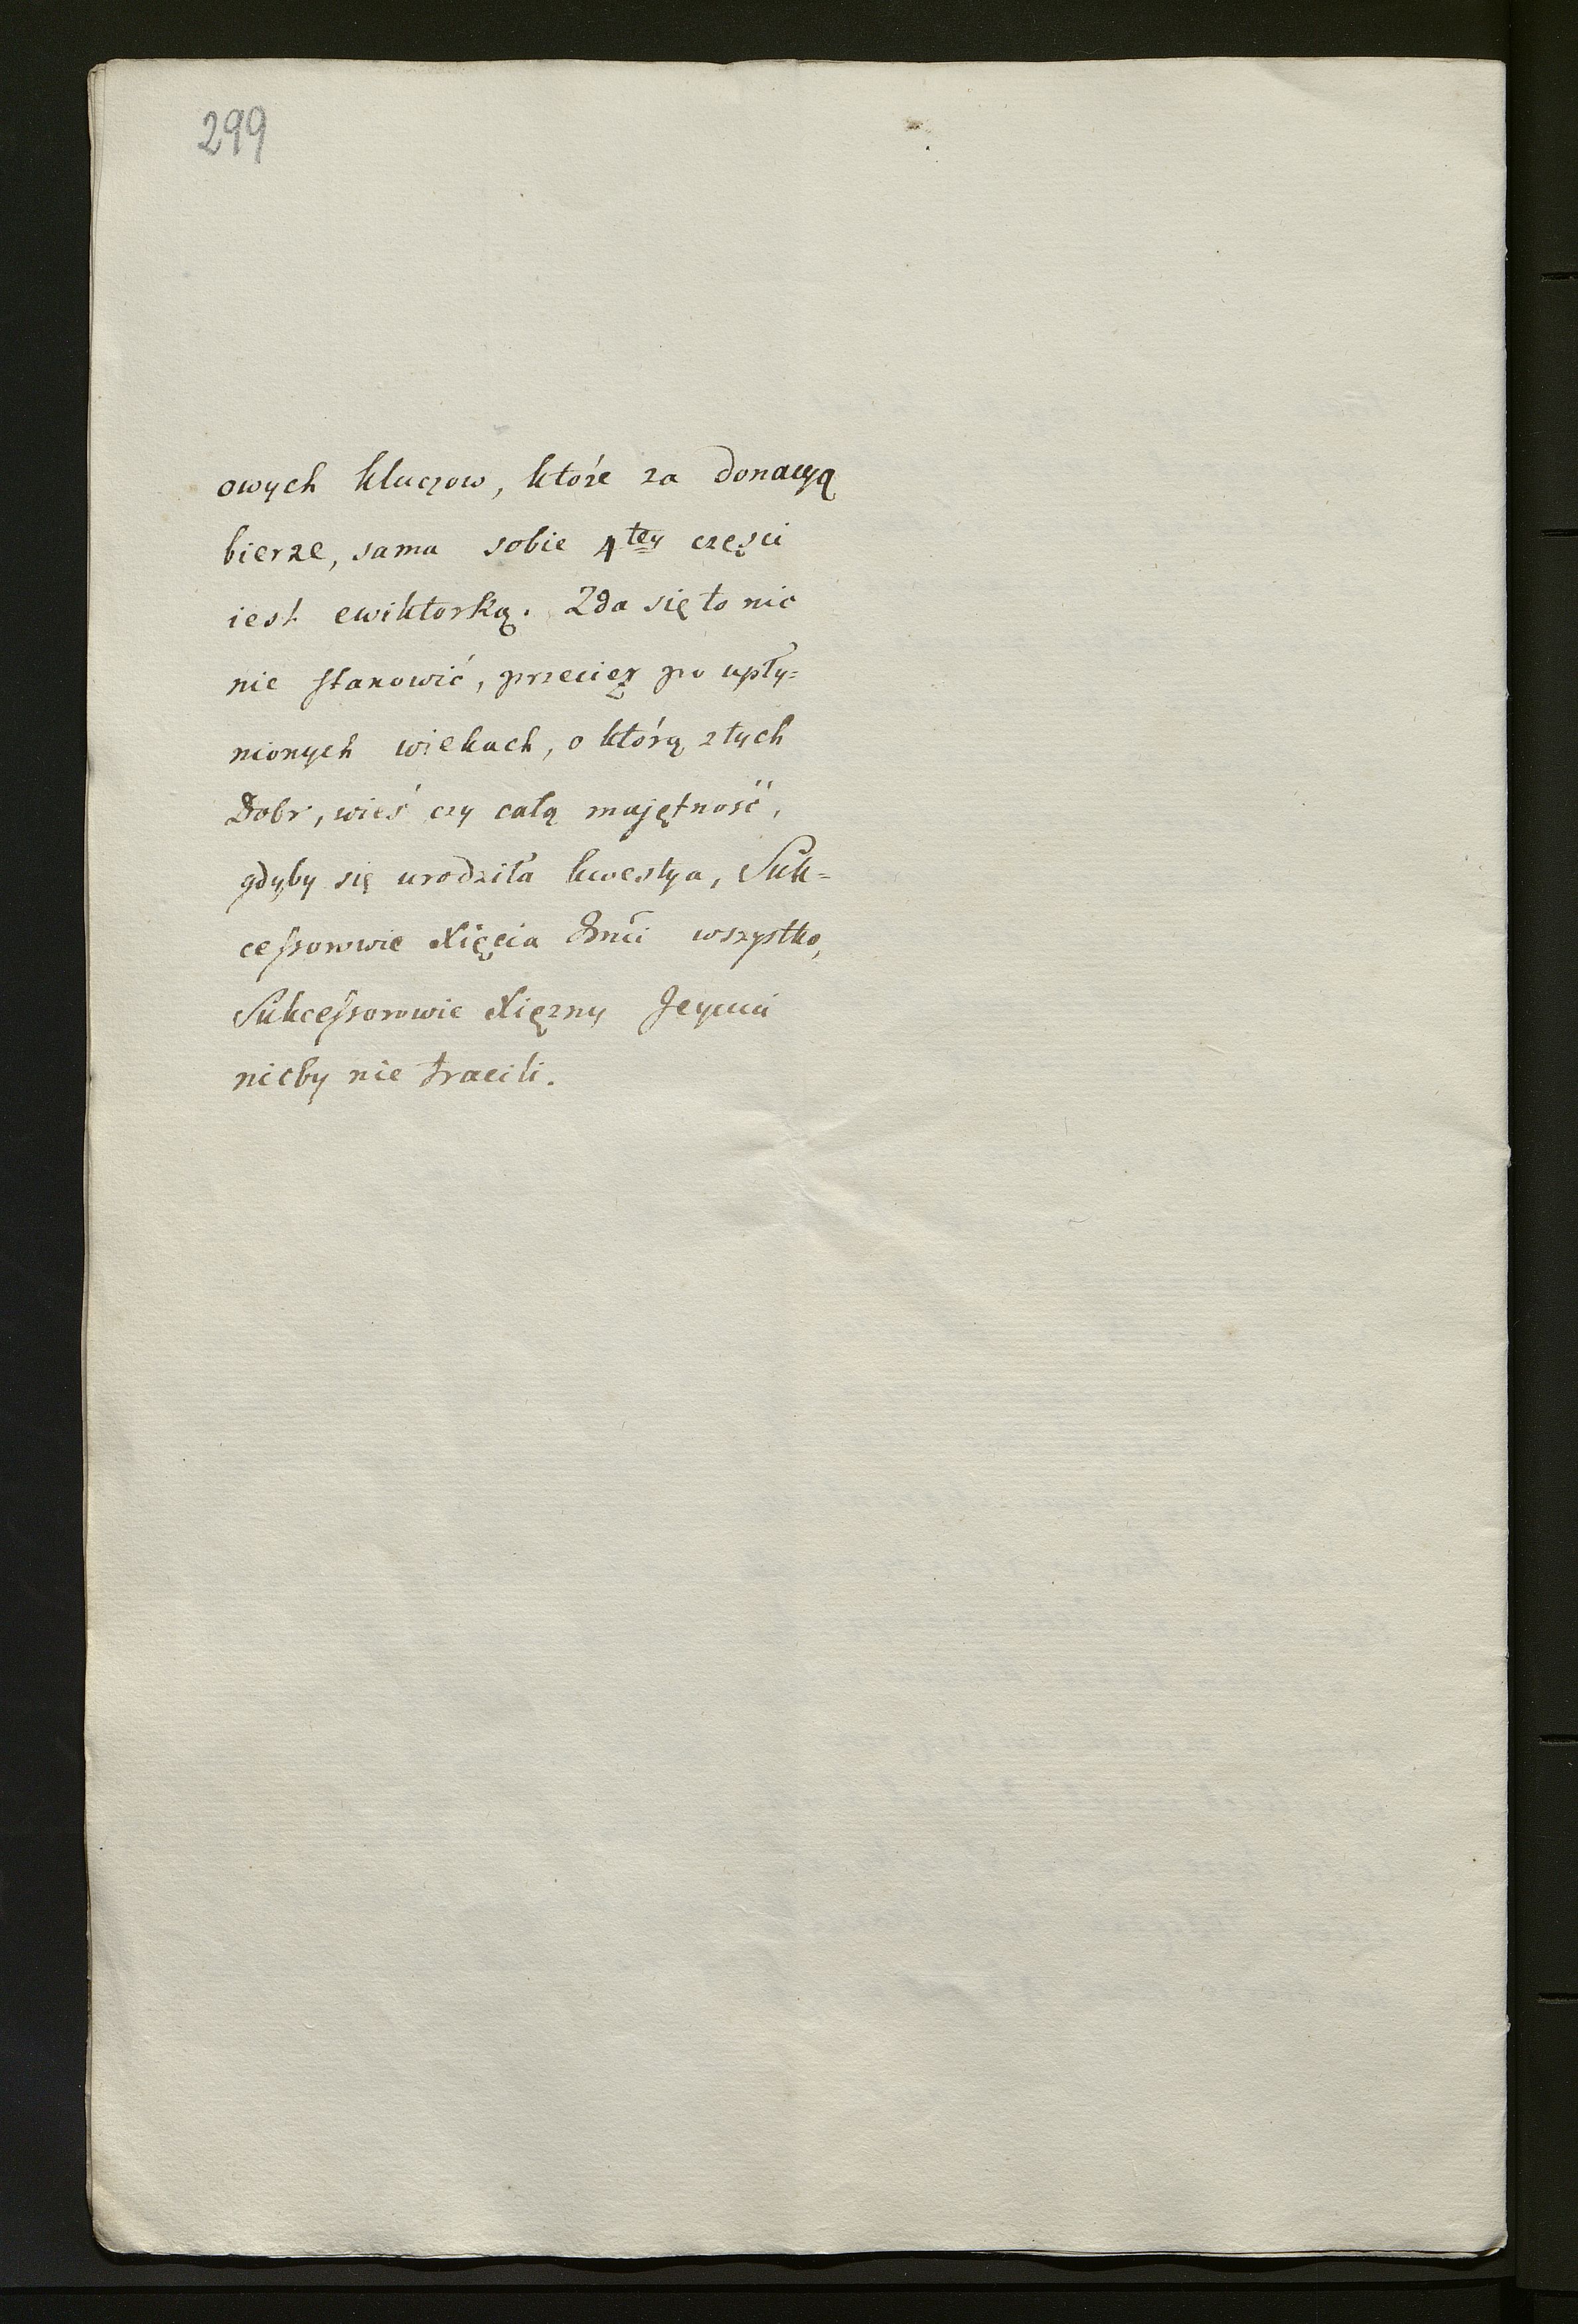 299
owych kluczow, które za donacyą
bierze, sama sobie 4tey części
iest ewiktorką. Zda się to nic
nie stanowić, przecież po upły=
nionych wiekach, o którą z tych
Dobr, wieś czy całą majętność,
gdyby się urodziła kwestya, Suk=
cessorowie Xięcia Jmci wszystko,
Sukcessorowie Xiężny Jeymci
nicby nie tracili.